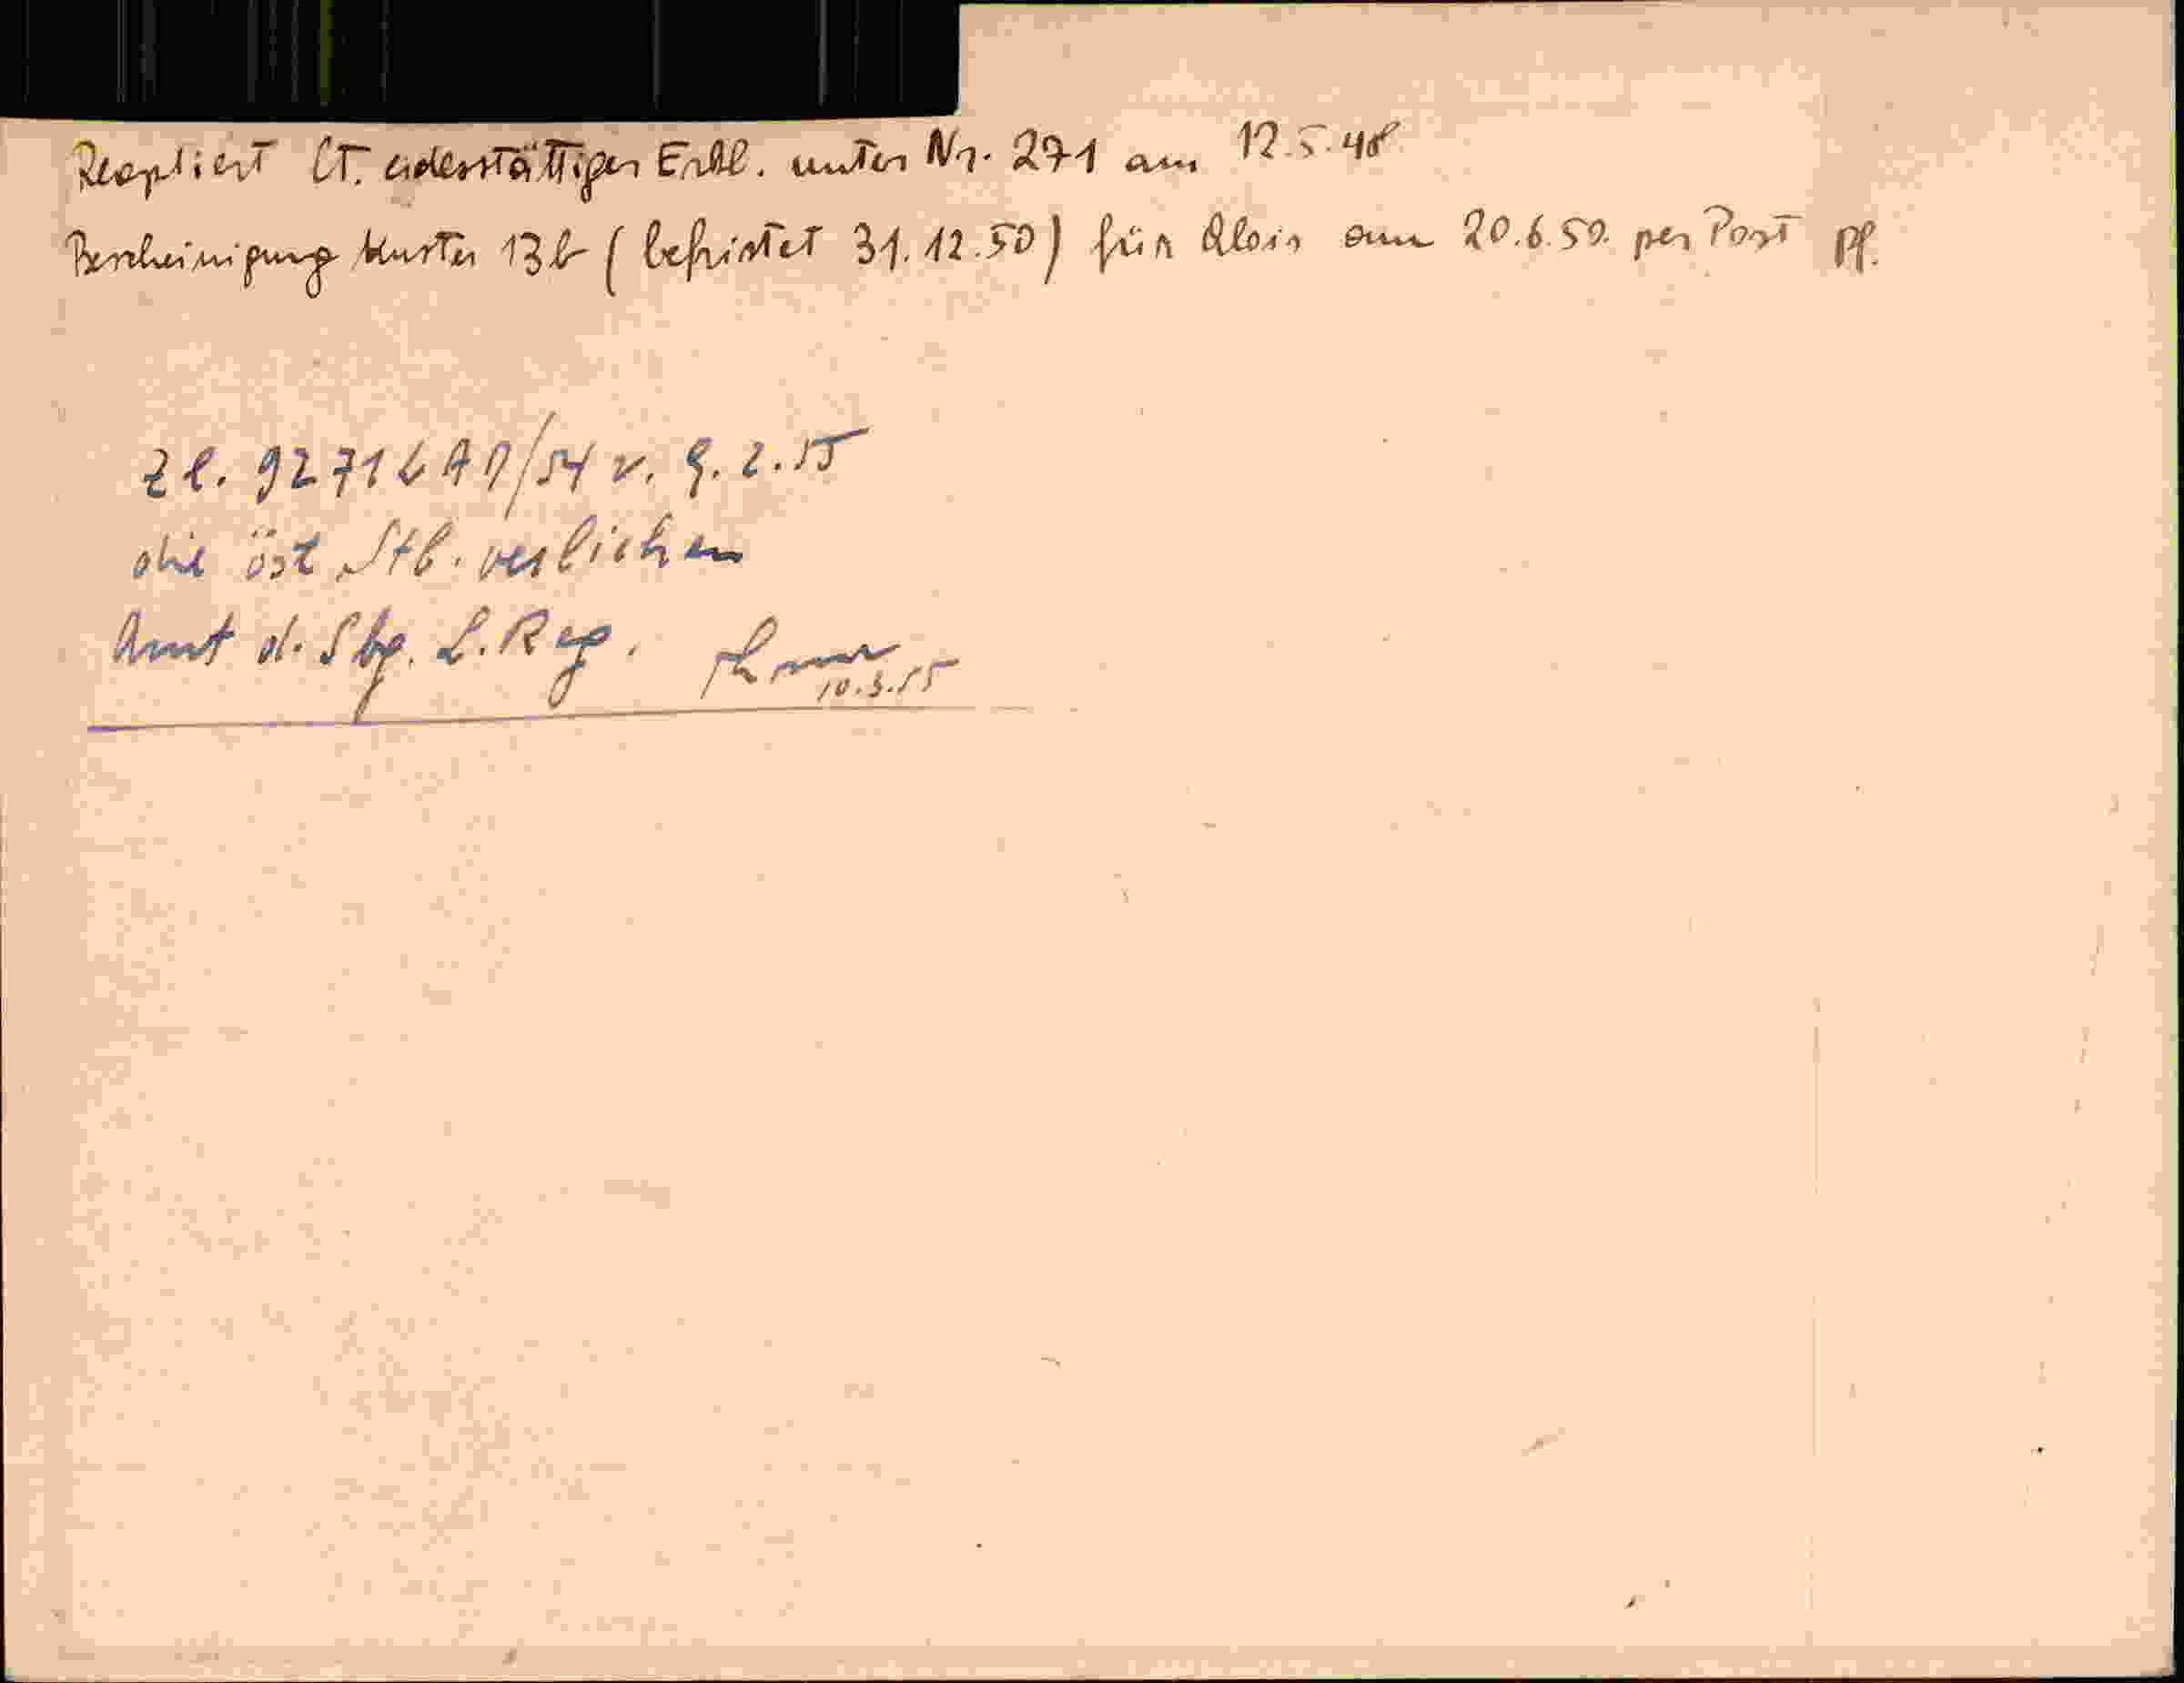 Reoptiert lt. eidesstättiger Erkl. unter Nr. 271 am 12.5.48
Bescheinigung Muster 13b (befristet 31.12.50) für Alois am 20.6.50. per Post pp.
Zl. 9271 LAD/54 v. 9.2.55
die öst Stb. verliehen
Amt d. Sbg. L. Reg.
10.3.55